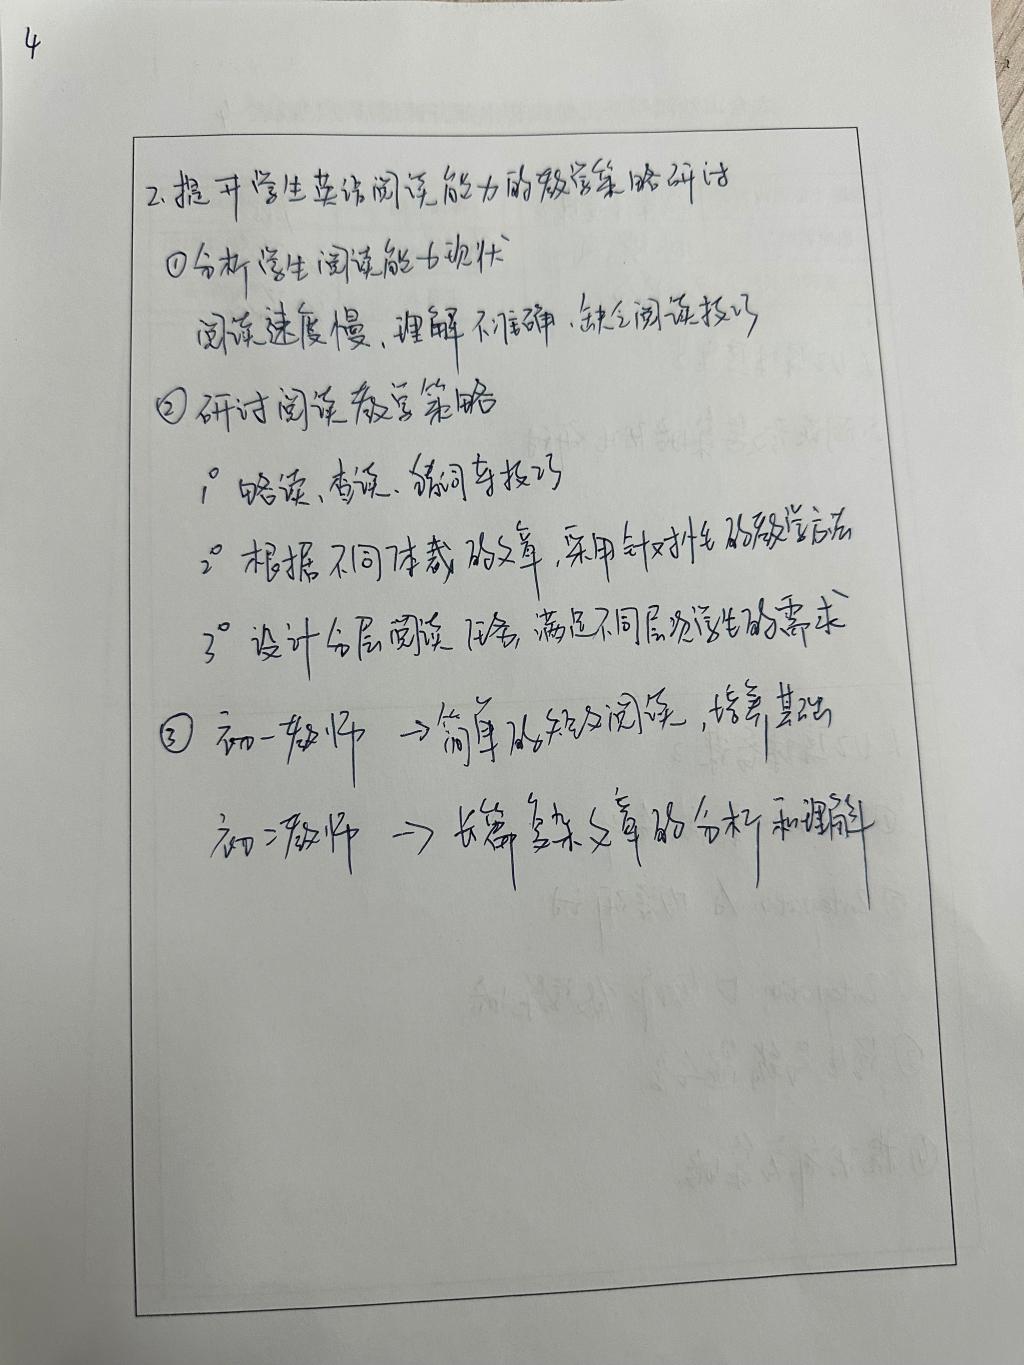 4
2.提升学生英语阅读能力的教学策略研讨
①分析学生阅读能力现状
阅读速度慢、理解不准确、缺乏阅读技巧
②研讨阅读教学策略
1° 略读、查读、猜词等技巧
2° 根据不同体裁的文章,采用针对性的教学方法
3° 设计分层阅读任务,满足不同层次学生的需求
③ 初一教师 →简单的短文阅读,培养基础
初二教师 → 长篇复杂文章的分析和理解